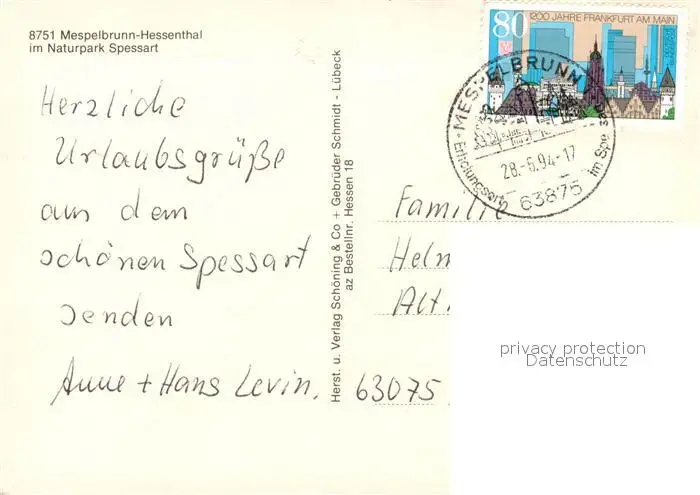 8751 Mespelbrunn-Hessenthal
im Naturpark Spessart
Herzliche
Urlaubsgrüße
aus dem
schönen Spessart
senden
Anne + Hans Levin,
Herst. u. Verlag Schöning & Co + Gebrüder Schmidt - Lübeck
az Bestellnr. Hessen 18
80
1200 JAHRE FRANKFURT AM MAIN
MESPELBRUNN
28.-6.94-17
Erholungsort
63875
im Spessart
Familie
Helm
Alt.
63075
privacy protection
Datenschutz